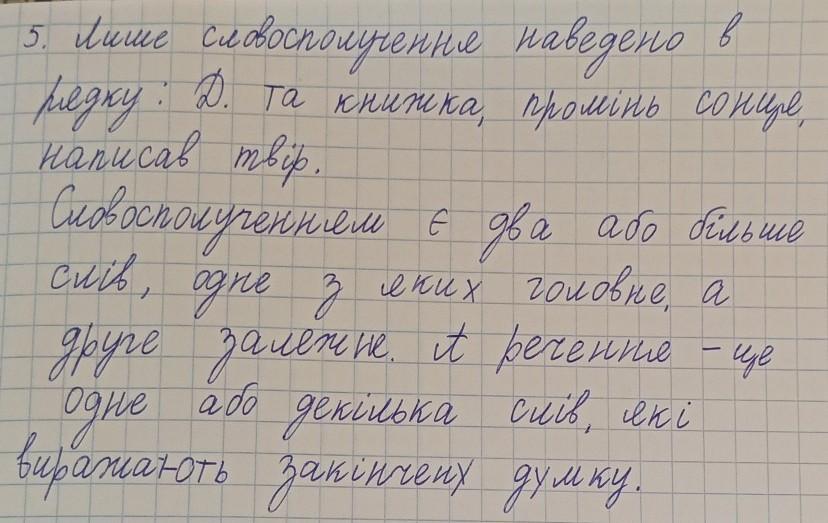 5. Лише словосполучення наведено в
рядку: Д. та книжка, промінь сонця,
написав твір.
Словосполученням є два або більше
слів, одне з яких головне, а
друге залежне. А речення – це
одне або декілька слів, які
виражають закінчену думку.